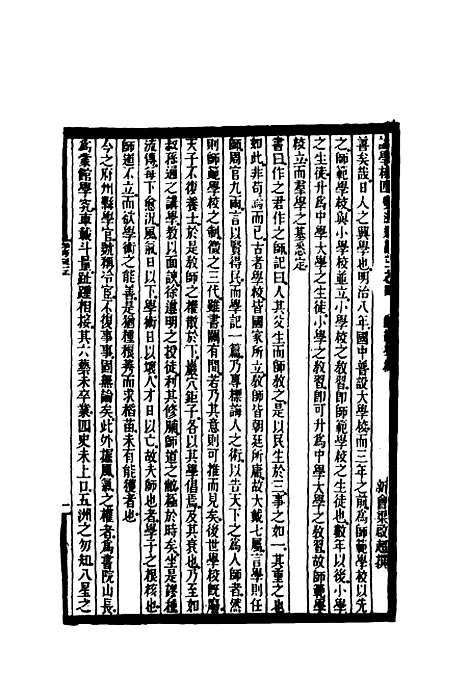 論學校四　變法通議三之四　師範學校
新會梁啟超撰
善矣哉日人之興學也明治八年國中普設大學校而三年之前爲師範學校以先
之師範學校與小學校並立小學校之教習即師範學校之生徒也數年以後小學
之生徒升爲中學大學之生徒小學之教習即可升爲中學大學之教習故師範學
校立而羣學之基悉定
書曰作之君作之師記曰人其父生而師教之是以民生於三事之如一其重之也
如此非苟焉而已古者學校皆國家所立教師皆朝廷所庸故大戴七屬言學則任
師周官九兩言以賢得民而學記一篇乃專標誨人之術以告天下之爲人師者然
則師範學校之制徵之三代雖書闕有間若乃其意則可推而見矣後世學校既廢
天子不復養士於是教師之權散於下巖穴鉅子各以其學倡焉及其衰也乃至如
叔孫通之講學教以面諛徐遵明之授徒利其修脯師道之敝極於時矣坐是謬種
流傳每下愈況風氣日以下學術日以壞人才日以亡故夫師也者學子之根核也
師道不立而欲學術之能善是猶種稂莠而求稻苗未有能獲者也
今之府州縣學官號稱冷官不復事事固無論矣此外握風氣之權者爲書院山長
爲蒙館學究車載斗量趾踵相接其六藝未卒業四史未上口五洲之勿知八星之
一